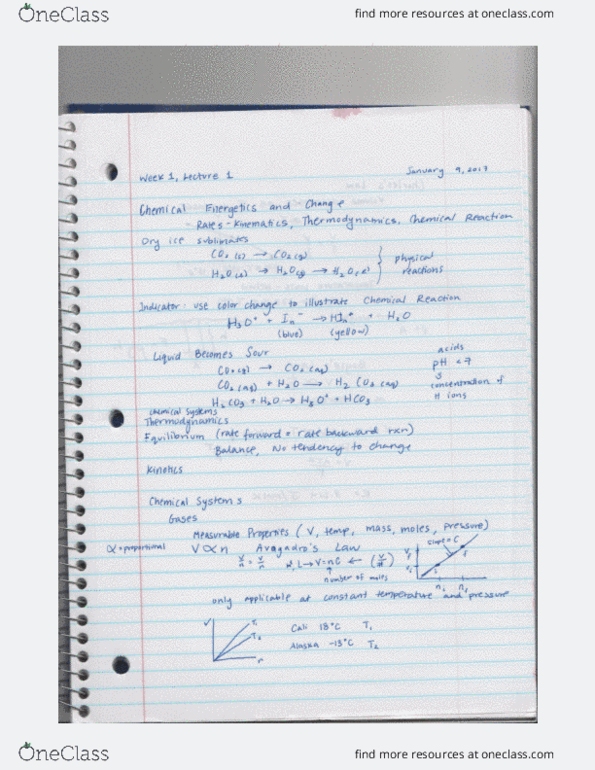 OneClass
find more resources at oneclass.com
Week 1, Lecture 1
January 9, 2017
Chemical Energetics and Change
Rates - Kinematics, Thermodynamics, Chemical Reaction
Dry ice sublimates
CO₂ (s) → CO₂ (g)
H₂O → H₂O(g) → H₂O
physical reactions
Indicator: use color change to illustrate Chemical Reaction
H₃O⁺ + In⁻ → HIn + H₂O
(blue) (yellow)
Liquid Becomes Sour
CO₂ (g) → CO₂ (aq)
CO₂ (aq) + H₂O → H₂ CO₃ (aq)
H₂CO₃ + H₂O → H₃O⁺ + HCO₃
acids
pH < 7
concentration of
H ions
Chemical Systems
Thermodynamics
Equilibrium (rate forward = rate backward rxn)
Balance, No tendency to change
Kinetics
Chemical Systems
Gases
Measurable Properties (V, temp, mass, moles, pressure)
∝ = proportional
V ∝ n Avagadro's Law
V/n = V/n → V = nC ← (V/n)
number of mols
slope = C
only applicable at constant temperature and pressure
V
T₁
T₂
Cali 18°C T₁
Alaska -13°C T₂
OneClass
find more resources at oneclass.com